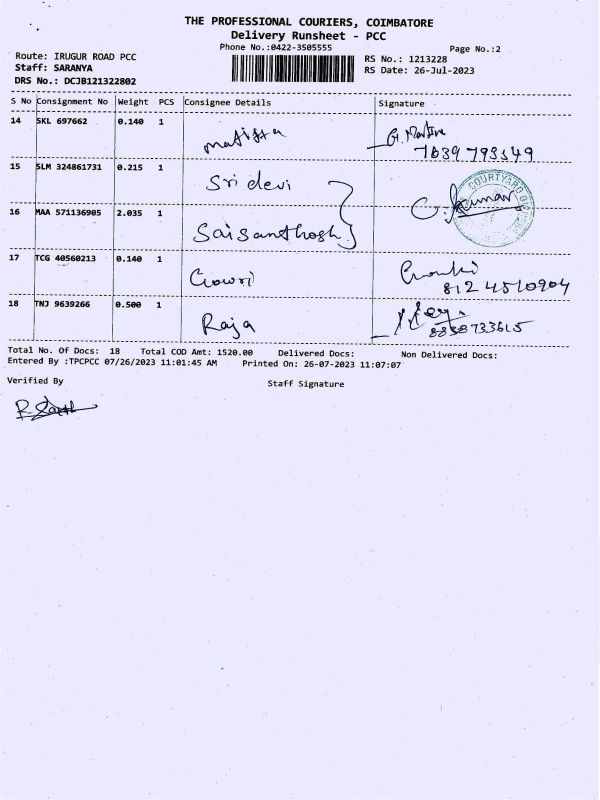 THE PROFESSIONAL COURIERS, COIMBATORE
Delivery Runsheet - PCC
Phone No.:0422-3505555 Page No.:2
Route: IRUGUR ROAD PCC RS No.: 1213228
Staff: SARANYA RS Date: 26-Jul-2023
DRS No.: DCJB121322802
S No Consignment No Weight PCS Consignee Details Signature
14 SKL 697662 0.140 1 G. Martin
7639 793549
15 SLM 324861731 0.215 1 Sri devi COURTYARD
16 MAA 571136905 2.035 1 Saisanthosh G. Kumar
17 TCG 40560213 0.140 1 Gowri
8124510904
18 TNJ 9639266 0.500 1 Raja
8838733615
Total No. Of Docs: 18 Total COD Amt: 1520.00 Delivered Docs: Non Delivered Docs:
Entered By :TPCPCC 07/26/2023 11:01:45 AM Printed On: 26-07-2023 11:07:07
Verified By Staff Signature